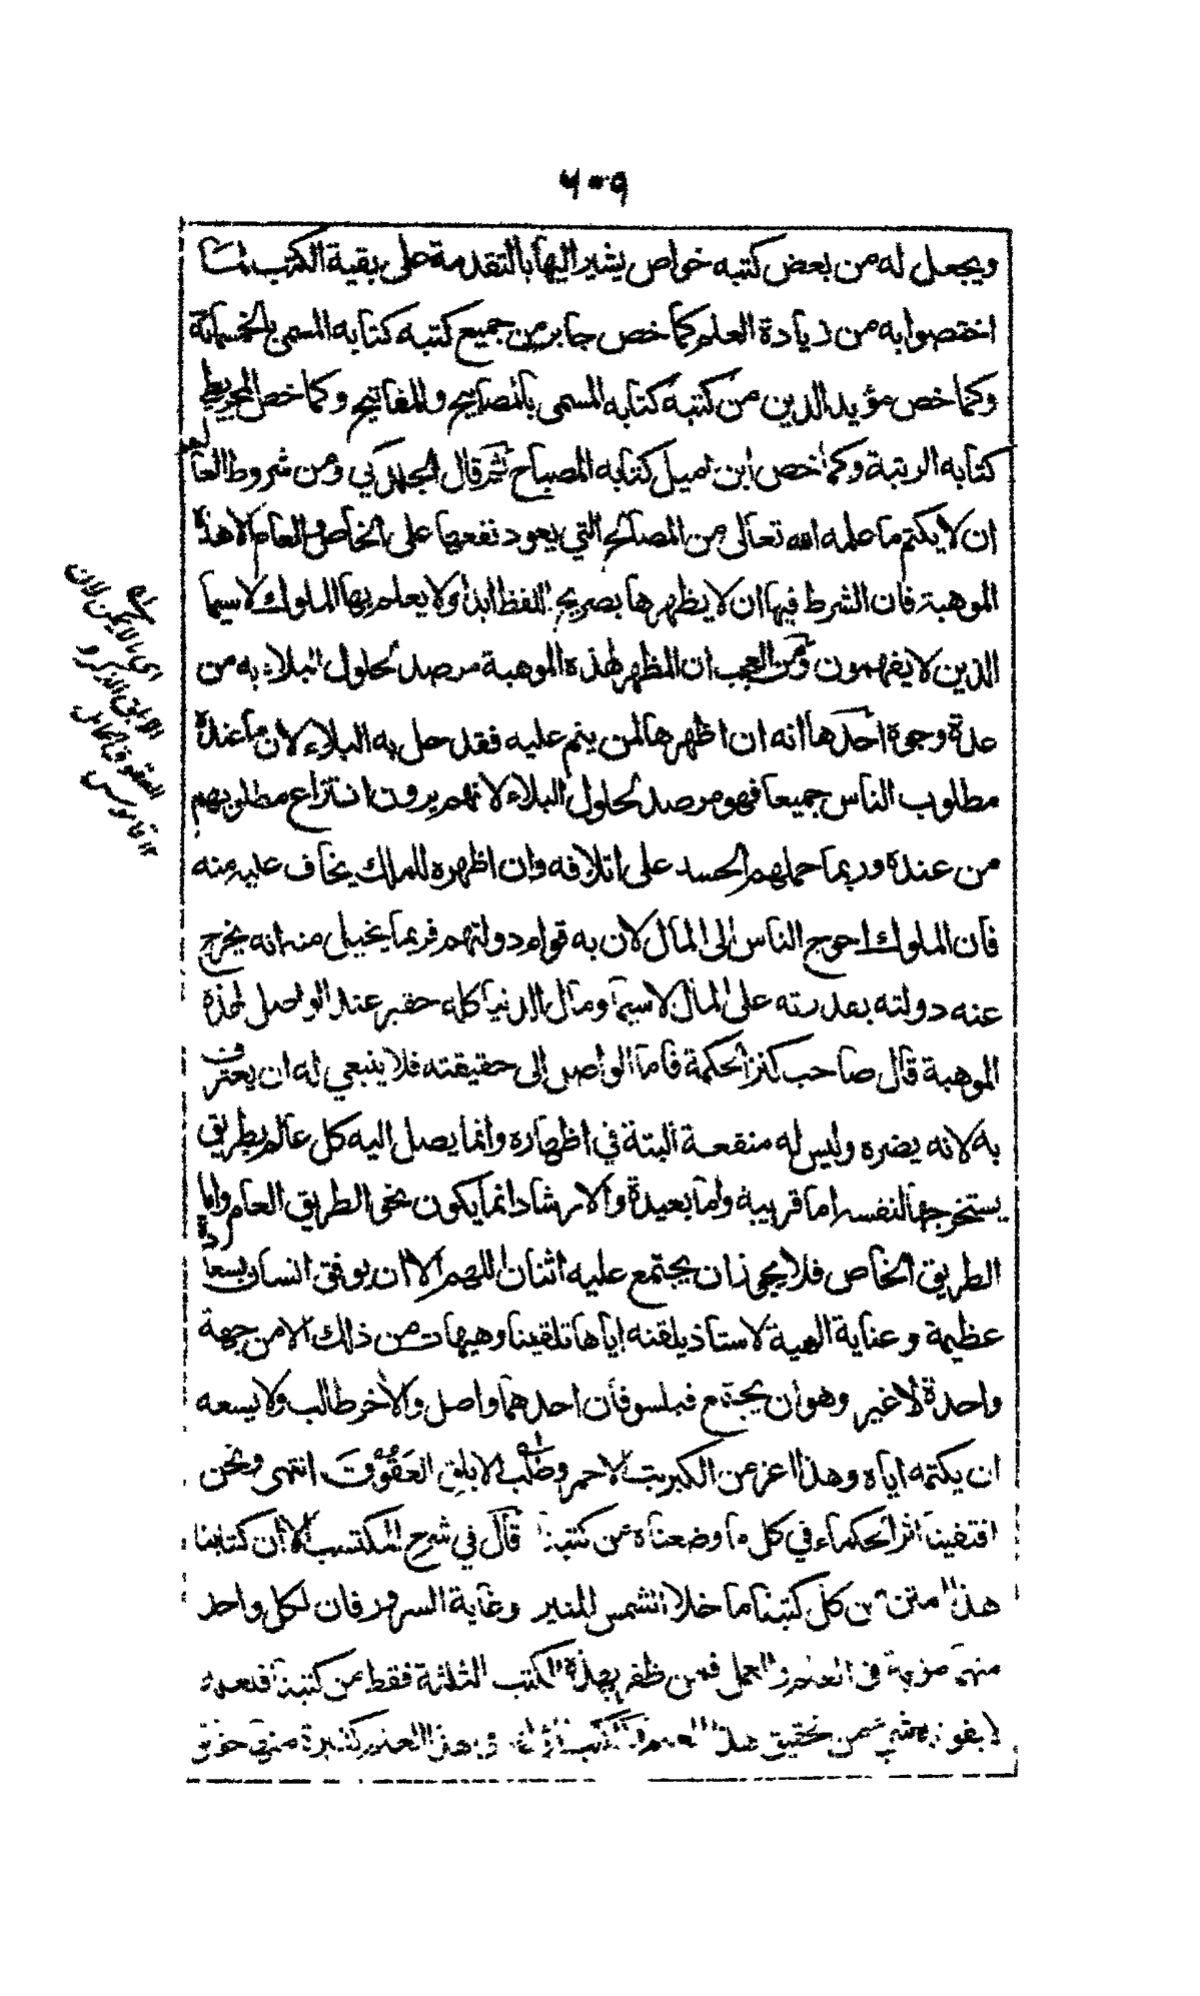 ٦٠٩
ويجعل له من بعض كتبه خواص يشير اليها بالتقدمة على بقية الكتب لما
اختصوا به من زيادة العلم كما خص جابر من جميع كتبه كتابه المسمى بالخمسمائة
وكما خص مؤيد الدين من كتبه كتابه المسمى بالمصابيح والمفاتيح وكما خص المجريطي
كتابه الرتبة وكما خص ابن اميل كتابه المصباح ثم قال الجلدكي ومن شروط العالم
ان لا يكتم ما علمه الله تعالى من المصالح التي يعود نفعها على الخاص والعام الا هذه
الموهبة فان الشرط فيها ان لا يظهرها بصريح اللفظ ابدا ولا يعلم بها الملوك لا سيما
الذين لا يفهمون ومن العجب ان المظهر لهذه الموهبة مرصد لحلول البلاء به من
عدة وجوه احدها انه ان اظهرها لمن ينم عليه فقد حل به البلاء لان ما عنده
مطلوب الناس جميعا فهو مرصد لحلول البلاء لانهم يرون انتزاع مطلوبهم
من عنده وربما حملهم الحسد على اتلافه وان اظهره للملك يخاف عليه منه
فان الملوك احوج الناس الى المال لان به قوام دولتهم فربما يخيل منه انه يخرج
عنه دولته بقدرته على المال لا سيما ومال الدنيا كله حقير عند الواصل لهذه
الموهبة قال صاحب كنز الحكمة فاما الواصل الى حقيقته فلا ينبغي له ان يعترف
به لانه يضره وليس له منفعة البتة في اظهاره وانما يصل اليه كل عالم بطريق
يستخرجها لنفسه اما قريبة واما بعيدة والارشاد انما يكون نحو الطريق العام واما
الطريق الخاص فلا يجوز ان يجتمع عليه اثنان اللهم الا ان يوفق انسان بسعادة
عظيمة وعناية الهية لاستاذ يلقنه اياها تلقينا وهيهات من ذلك الا من جهة
واحدة لا غير وهو ان يجتمع فيلسوفان احدهما واصل والاخر طالب ولا يسعه
ان يكتمه اياه وهذا اعز من الكبريت الاحمر وطلب الابلق العقوق انتهى ونحن
اقتفينا اثر الحكماء في كل ما وضعناه من كتبنا قال في شرح المكتسب الا ان كتابنا
هذا امتن من كل كتبنا ما خلا الشمس المنير وغاية السرور فان لكل واحد
منهما مزية في العلم والعمل فمن ظفر بهذه الكتب الثلثة فقط من كتبنا فلعله
لا يفوته شيء من تحقيق هذا العلم والكتب المؤلفة في هذا العلم كثيرة منها
اي ما لا يمكن لان
الابلق الذكر و
العقوق الحامل
١٢ قاموس